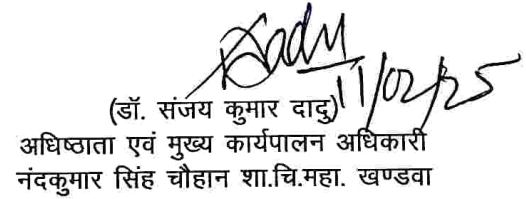 Dadu
11/02/25
(डॉ. संजय कुमार दादु)
अधिष्ठाता एवं मुख्य कार्यपालन अधिकारी
नंदकुमार सिंह चौहान शा.चि.महा. खण्डवा